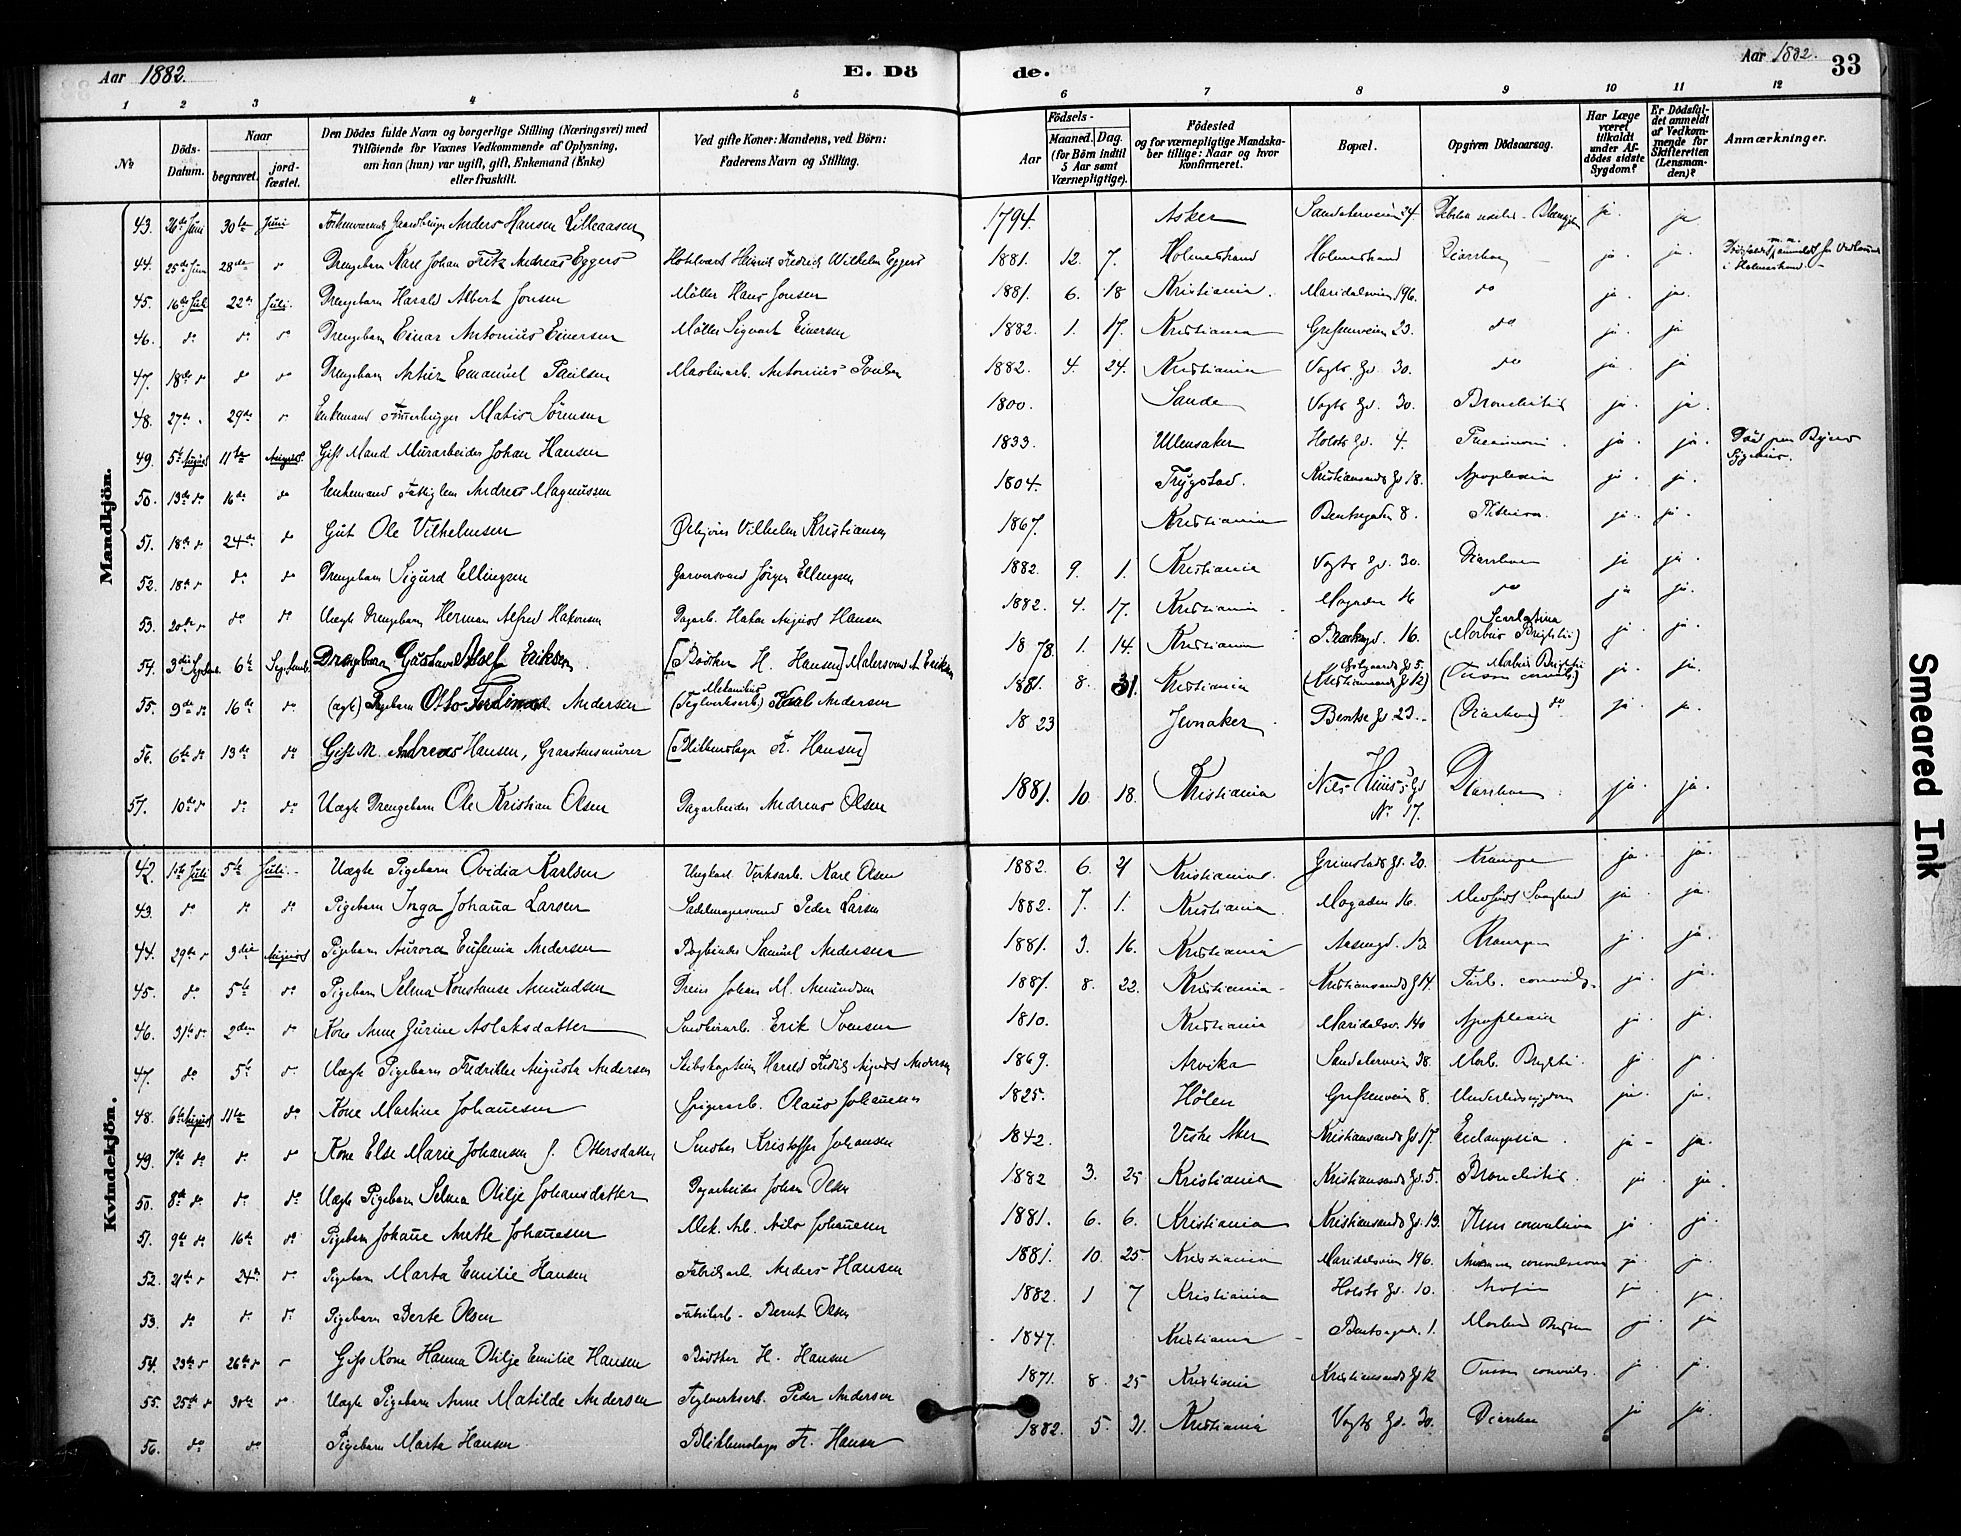 Aar 1882.
E. Dö
de.
Aar 1882.
33
1 2 3 4 5 6 7 8 9 10 11 12
No
Döds-Datum.
Naar
begravet.
jord-fæstet.
Den Dödes fulde Navn og borgerlige Stilling (Næringsvei) med Tilföiende for Voxnes Vedkommende af Oplysning, om han (hun) var ugift, gift, Enkemand (Enke) eller fraskilt.
Ved gifte Koner: Mandens, ved Börn: Faderens Navn og Stilling.
Födsels-
Aar
Maaned.
Dag.
(for Börn indtil 5 Aar samt Værnepligtige).
Födested og for værnepligtige Mandskaber tillige: Naar og hvor konfirmeret.
Bopæl.
Opgiven Dödsaarsag.
Har Læge været tilkaldt under Afdödes sidste Sygdom?
Er Dödsfaldet anmeldt af Vedkommende for Skifteretten (Lensmanden)?
Anmærkninger.
Mandkjön.
43. 26de Juni 30te Juni Anders Hansen Lilleaasen 1794. Asker Sandakerveien 24 ja. ja
44. 25de Juni 28de do Drengebarn Karl Johan Fritz Andreas Eggers Heinrich Fredrich Wilhelm Eggers 1881. 12. 7. Holmestrand Holmestrand Diarrhoe ja. ja. i Holmestrand.
45. 16de Juli 22de Juli. Drengebarn Harald Albert Jonsen Möller Hans Jonsen 1881. 6. 18 Kristiania. Maridalsveien 196. do ja. ja.
46. do do do Drengebarn Einar Antonius Einersen Möller Sigvart Einersen 1882. 1. 17. Kristiania Grefsenveien 23. do ja. ja
47. 18de do do do Drengebarn Artur Emanuel Paulsen Antonius Paulsen 1882. 4. 24. Kristiania Vogts Gd. 30. do ja. ja
48. 27de 29de Enkemand Matis Sörensen 1800. Sande Vogts Gd. 30. Bronchitis ja. ja.
49. 5te August 11te August Gift Mand Murarbeider Johan Hansen 1833. Ullensaker Holsts Gd. 4. ja. ja. Död paa Byens Sygehus.
50. 13de do 16de do Enkemand Fattiglem Andreas Magnussen 1804. Trygstad. Kristiansands Gd 18. Apoplexia ja. ja.
51. 18de do 24de do Gut Ole Vilhelmsen Vilhelm Kristiansen 1867. Kristiania Bentsegaden 8. ja. ja.
52. 18de do do Drengebarn Sigurd Ellingsen Garversvend Jörgen Ellingsen 1882. 9. 1. Kristiania Vogts Gd. 30. Diarrhoe ja ja.
53. 20de do do Uægte Drengebarn Herman Alfred Hakonsen Dagarb. Hakon August Hansen 1882. 4. 17. Kristiania Mogaden 16 do ja ja.
54. 3die Septemb. 6te Septemb. Drengebarn Gustav Adolf Eriksen [Bödtker H. Hansen] Malersvend A. Eriksen 1878. 1. 14. Kristiania 16. Scarlatina (Morbus Brightii) ja. ja.
55. 9de do 16de do (ægte) Otto Ferdinand Andersen Mekanikus (Teglverksarb.) Karl Andersen 1881. 8. 31. Kristiania 5. (Kristiansands Gd 12) Morbus Brightii ja. ja.
56. 6te do 13de do Gift M. Andreas Hansen, Graastensmurer [Blikkenslager Fr. Hansen] 1823 Jevnaker Bentse Gd 23. (Diarrhoe) do ja. ja.
57. 10de do do do Uægte Drengebarn Ole Kristian Olsen Dagarbeider Andreas Olsen 1881. 10. 18. Kristiania Nils Huus's Gd No 17. Diarrhoe ja. ja.
Kvindekjön.
42. 1ste Juli 5te Juli. Uægte Pigebarn Ovidia Karlsen Ungkarl Verksarb. Karl Olsen 1882. 6. 21 Kristiania. Grimstads Gd. 20. Krampe ja. ja.
43. do do do Pigebarn Inga Johanna Larsen Sadelmagersvend Peder Larsen 1882. 7. 1. Kristiania. Mogaden 16. Medfödt Svaghed ja. ja.
44. 29de do 3die August Pigebarn Aurora Eufemia Andersen Bogbinder Samuel Andersen 1881. 3. 16. Kristiania 13 Krampe ja. ja.
45. do 5te do Pigebarn Selma Konstanse Amundsen Dreier Johan M. Amundsen 1881. 8. 22. Kristiania Kristiansands Gd 14. convuls. ja. ja.
46. 31te do 2den do Kone Anne Gurine Aslaksdatter Erik Svensen 1810. Kristiania Maridalsv. 140 Apoplexia ja. ja.
47. do 5te do Uægte Pigebarn Fredrikke Augusta Andersen Skibskaptein Harald Fredrik August Andersen 1869. Arvika Sandakerveien 38. Morb. Brightii ja ja.
48. 6te August 11te do Kone Martine Johannesen Spigerarb. Olaus Johannesen 1825. Hölen Grefsenveien 8. Underlivssygdom ja. ja.
49. 7de do do do Kone Else Marie Johansen f. Ottersdatter Kristoffer Johansen 1842. Vestre Aker Kristiansands Gd 17. Eclampsia. ja. ja.
50. 8de do do do Uægte Pigebarn Selma Otilje Johansdatter Dagarbeider Johan Olsen 1882 3. 25 Kristiania Kristiansands Gd. 5. Bronchitis. ja. ja.
51. 9de do 16de do Pigebarn Johanne Anette Johannesen Mek. Arb. Nils Johannesen 1881. 6. 6. Kristiania Kristiansands Gd. 13. convulsiva ja. ja.
52. 21de do 24de do Pigebarn Marta Emilie Hansen Fabrikarb. Anders Hansen 1881. 10. 25 Kristiania Maridalsveien 196. ja. ja.
53. do do do Pigebarn Berte Olsen Fabrikarb. Bernt Olsen 1882. 1 7 Kristiania Holsts Gd. 10. ja ja.
54. 23de do 26de do Gift Kone Hanna Otilje Emilie Hansen Bödtker H. Hansen 1847. Kristiania Bentsegad. 1. ja. ja
55. 25de do 30te do Uægte Pigebarn Anne Matilde Andersen Teglverksarb. Peder Andersen 1871. 8. 25 Kristiania Kristiansands Gd 12 Tussis convuls. ja. ja.
56. do do Pigebarn Marta Hansen Blikkenslager Fr. Hansen 1882. 5. 21. Kristiania Vogts Gd. 30. Diarrhoe ja ja.
Smeared Ink